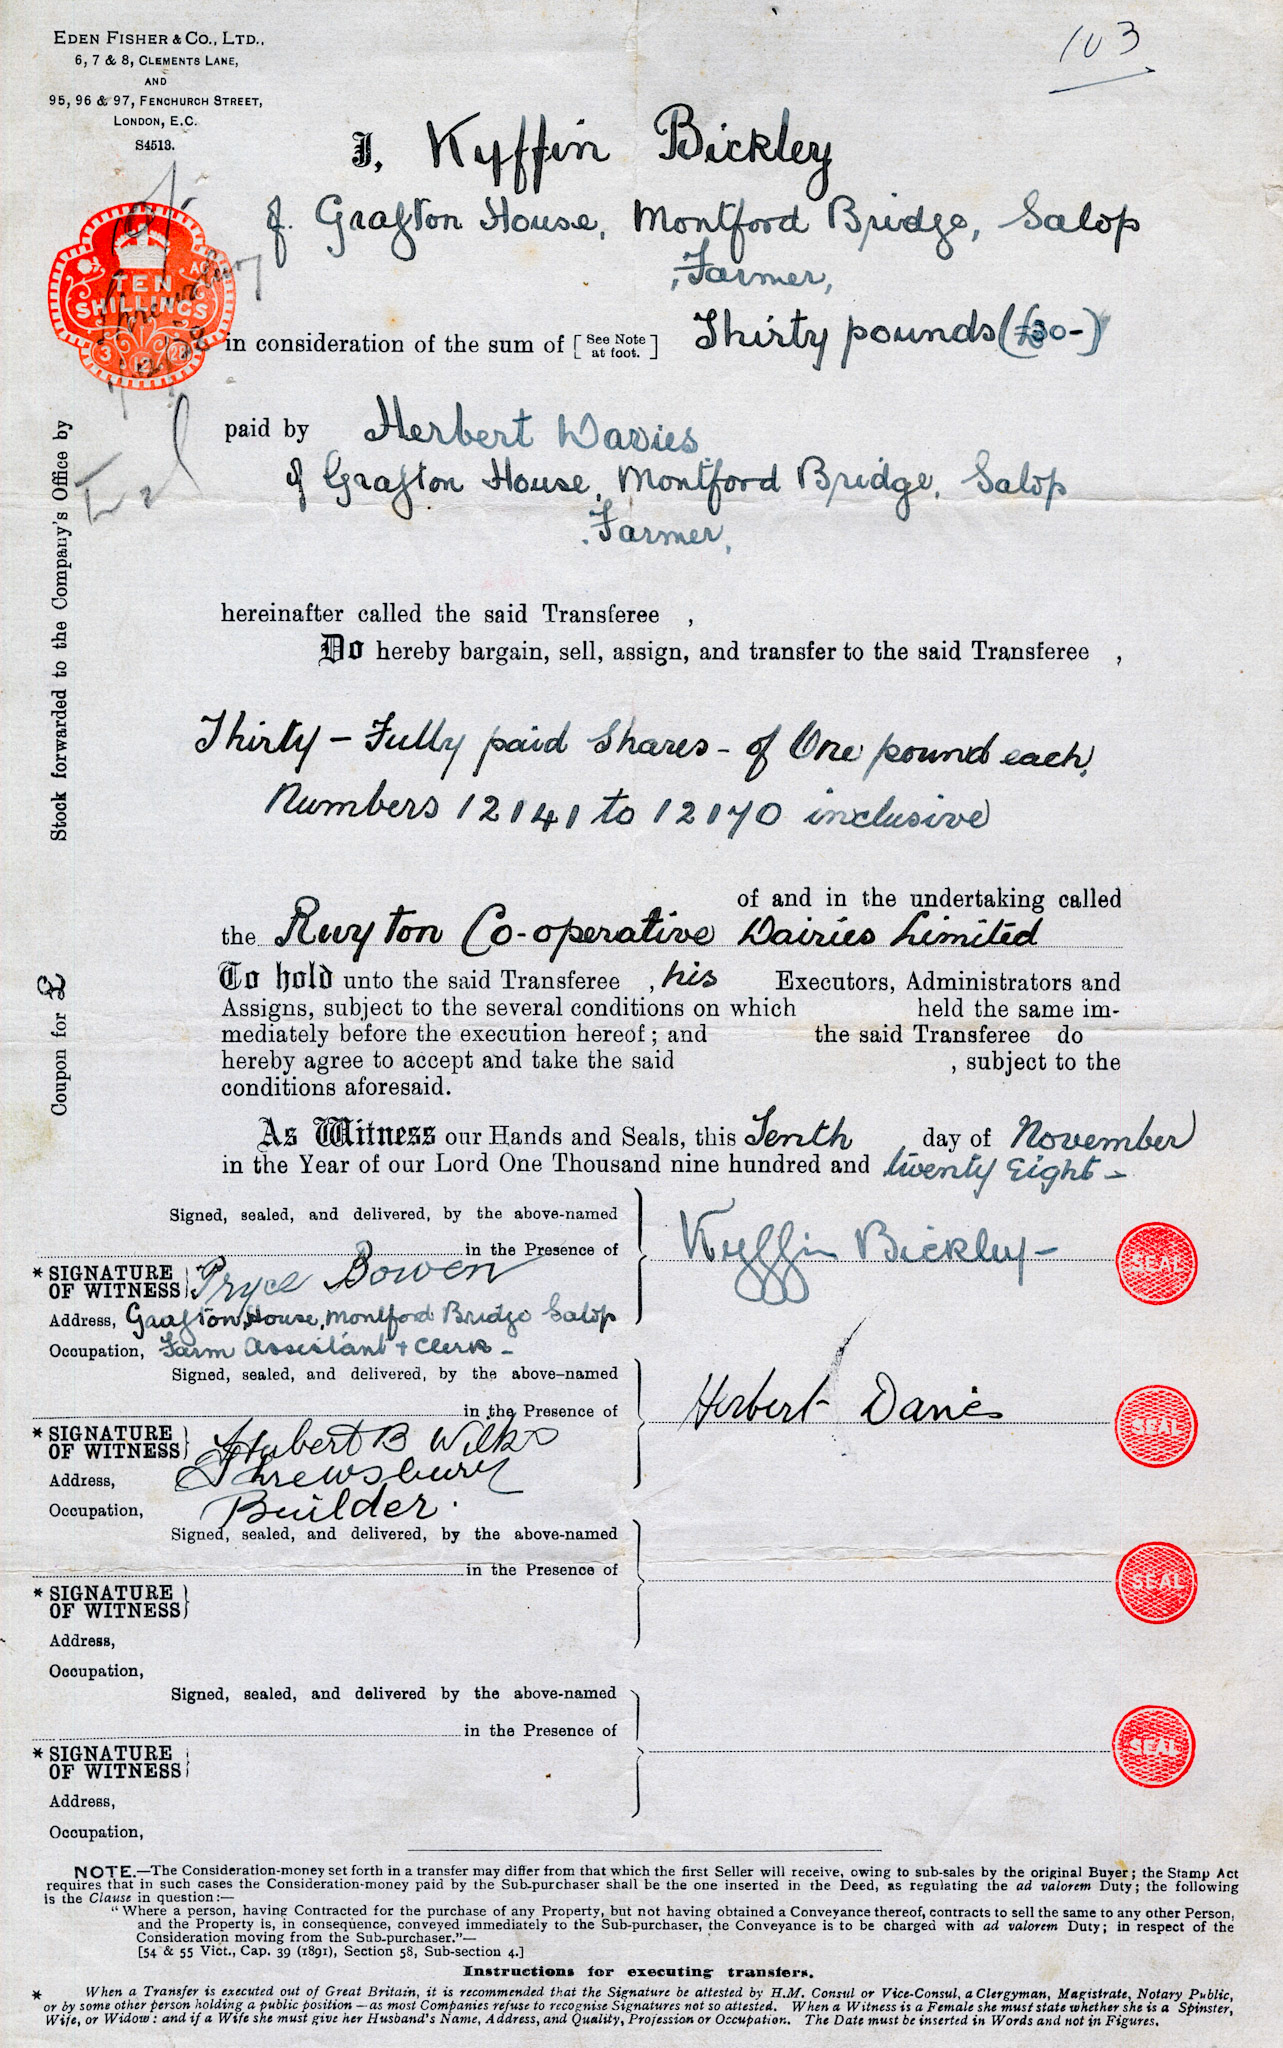 EDEN FISHER & CO., LTD.,
6, 7 & 8, CLEMENTS LANE,
AND
95, 96 & 97, FENCHURCH STREET,
LONDON, E.C.
S4513.
103
I, Kyffin Bickley
of Grafton House, Montford Bridge, Salop
Farmer,
TEN
SHILLINGS
3 12 28
Shrewsbury
in consideration of the sum of [See Note at foot.] Thirty pounds (£30-)
paid by Herbert Davies
of Grafton House, Montford Bridge, Salop
Farmer,
Stock forwarded to the Company's Office by
Coupon for £
hereinafter called the said Transferee ,
Do hereby bargain, sell, assign, and transfer to the said Transferee ,
Thirty - Fully paid Shares - of One pound each,
Numbers 12141 to 12170 inclusive
of and in the undertaking called
the Ruyton Co-operative Dairies Limited
To hold unto the said Transferee , his Executors, Administrators and
Assigns, subject to the several conditions on which held the same im-
mediately before the execution hereof; and the said Transferee do
hereby agree to accept and take the said , subject to the
conditions aforesaid.
As Witness our Hands and Seals, this Tenth day of November
in the Year of our Lord One Thousand nine hundred and twenty Eight -
Signed, sealed, and delivered, by the above-named
in the Presence of
Kyffin Bickley -
SEAL
* SIGNATURE OF WITNESS Pryce Bowen
Address, Graafton House, Montford Bridge Salop
Occupation, Farm Assistant + Clerk -
Signed, sealed, and delivered, by the above-named
in the Presence of
Herbert Davies
SEAL
* SIGNATURE OF WITNESS Hubert B Wilks
Address, Shrewsbury
Occupation, Builder.
Signed, sealed, and delivered, by the above-named
in the Presence of
SEAL
* SIGNATURE OF WITNESS
Address,
Occupation,
Signed, sealed, and delivered by the above-named
in the Presence of
SEAL
* SIGNATURE OF WITNESS
Address,
Occupation,
NOTE.—The Consideration-money set forth in a transfer may differ from that which the first Seller will receive, owing to sub-sales by the original Buyer; the Stamp Act
requires that in such cases the Consideration-money paid by the Sub-purchaser shall be the one inserted in the Deed, as regulating the ad valorem Duty; the following
is the Clause in question:—
"Where a person, having Contracted for the purchase of any Property, but not having obtained a Conveyance thereof, contracts to sell the same to any other Person,
and the Property is, in consequence, conveyed immediately to the Sub-purchaser, the Conveyance is to be charged with ad valorem Duty; in respect of the
Consideration moving from the Sub-purchaser."—
[54 & 55 Vict., Cap. 39 (1891), Section 58, Sub-section 4.]
Instructions for executing transfers.
* When a Transfer is executed out of Great Britain, it is recommended that the Signature be attested by H.M. Consul or Vice-Consul, a Clergyman, Magistrate, Notary Public,
or by some other person holding a public position—as most Companies refuse to recognise Signatures not so attested. When a Witness is a Female she must state whether she is a Spinster,
Wife, or Widow: and if a Wife she must give her Husband's Name, Address, and Quality, Profession or Occupation. The Date must be inserted in Words and not in Figures.